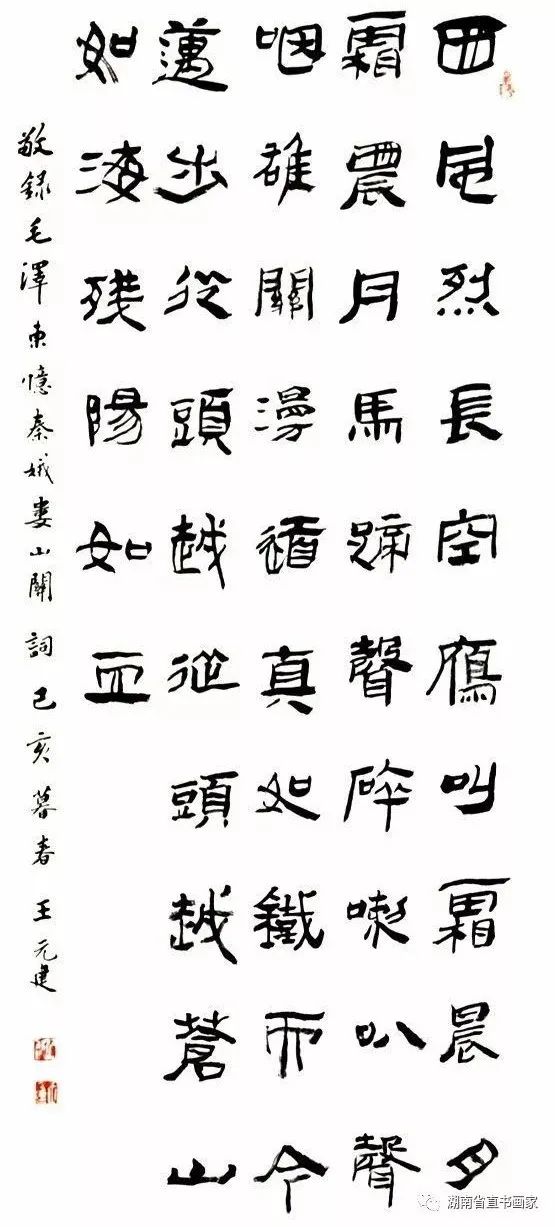 西風烈長空鴈叫霜晨月
霜農月馬蹄聲碎喇叭聲
咽雄關漫道真如鐵而今
邁步從頭越從頭越蒼山
如海殘陽如血
敬録毛澤東憶秦娥婁山關詞己亥暮春王元建
湖南省直书画家